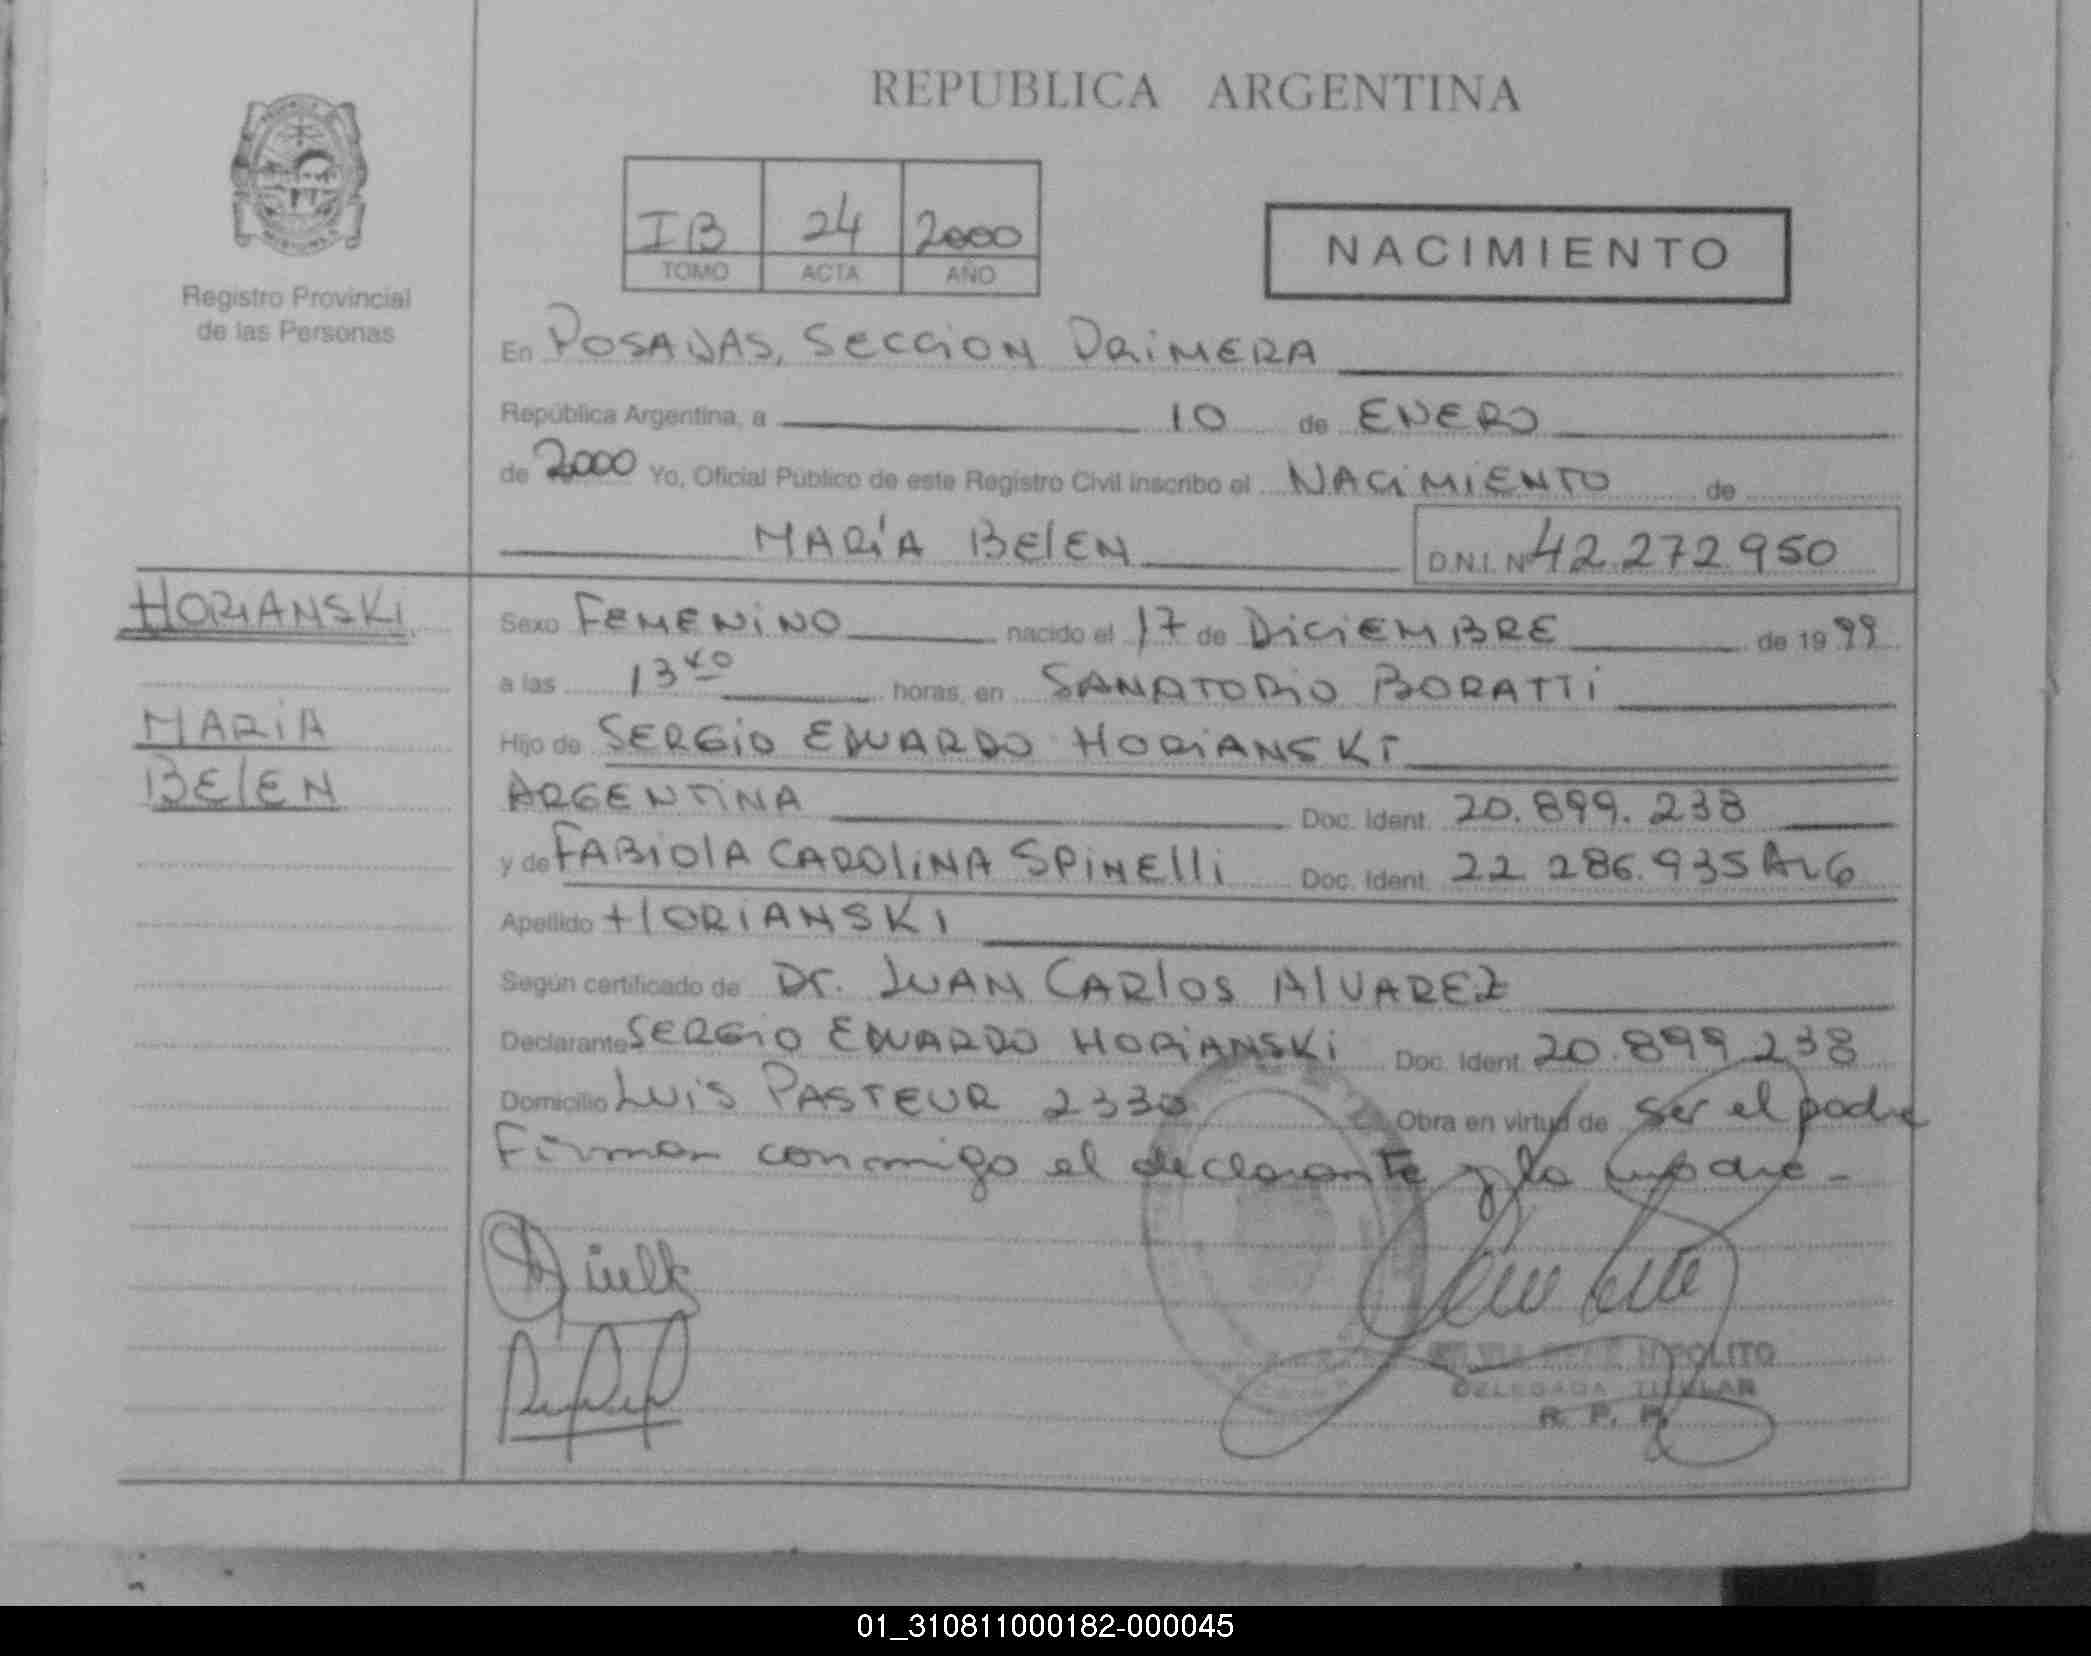 REPUBLICA ARGENTINA
IB 24 2000
TOMO ACTA AÑO
NACIMIENTO
Registro Provincial
de las Personas
En POSADAS, SECCION PRIMERA
República Argentina, a 10 de ENERO
de 2000 Yo, Oficial Público de este Registro Civil inscribo el NACIMIENTO de
MARÍA BELEN D.N.I. Nº 42.272.950
HORIANSKI
MARIA
BELEN
Sexo FEMENINO nacido el 17 de DICIEMBRE de 1999
a las 13 40 horas, en SANATORIO BORATTI
Hijo de SERGIO EDUARDO HORIANSKI
ARGENTINA Doc. Ident. 20.899.238
y de FABIOLA CAROLINA SPINELLI Doc. Ident. 22 286.935 ARG
Apellido HORIANSKI
Según certificado de Dr. JUAN CARLOS ALVAREZ
Declarante SERGIO EDUARDO HORIANSKI Doc. Ident. 20.899 238
Domicilio LUIS PASTEUR 2330 Obra en virtud de ser el padre
Firman conmigo el declarante y la madre.-
HIPOLITO
DELEGADA TITULAR
R. P. P.
01_310811000182-000045